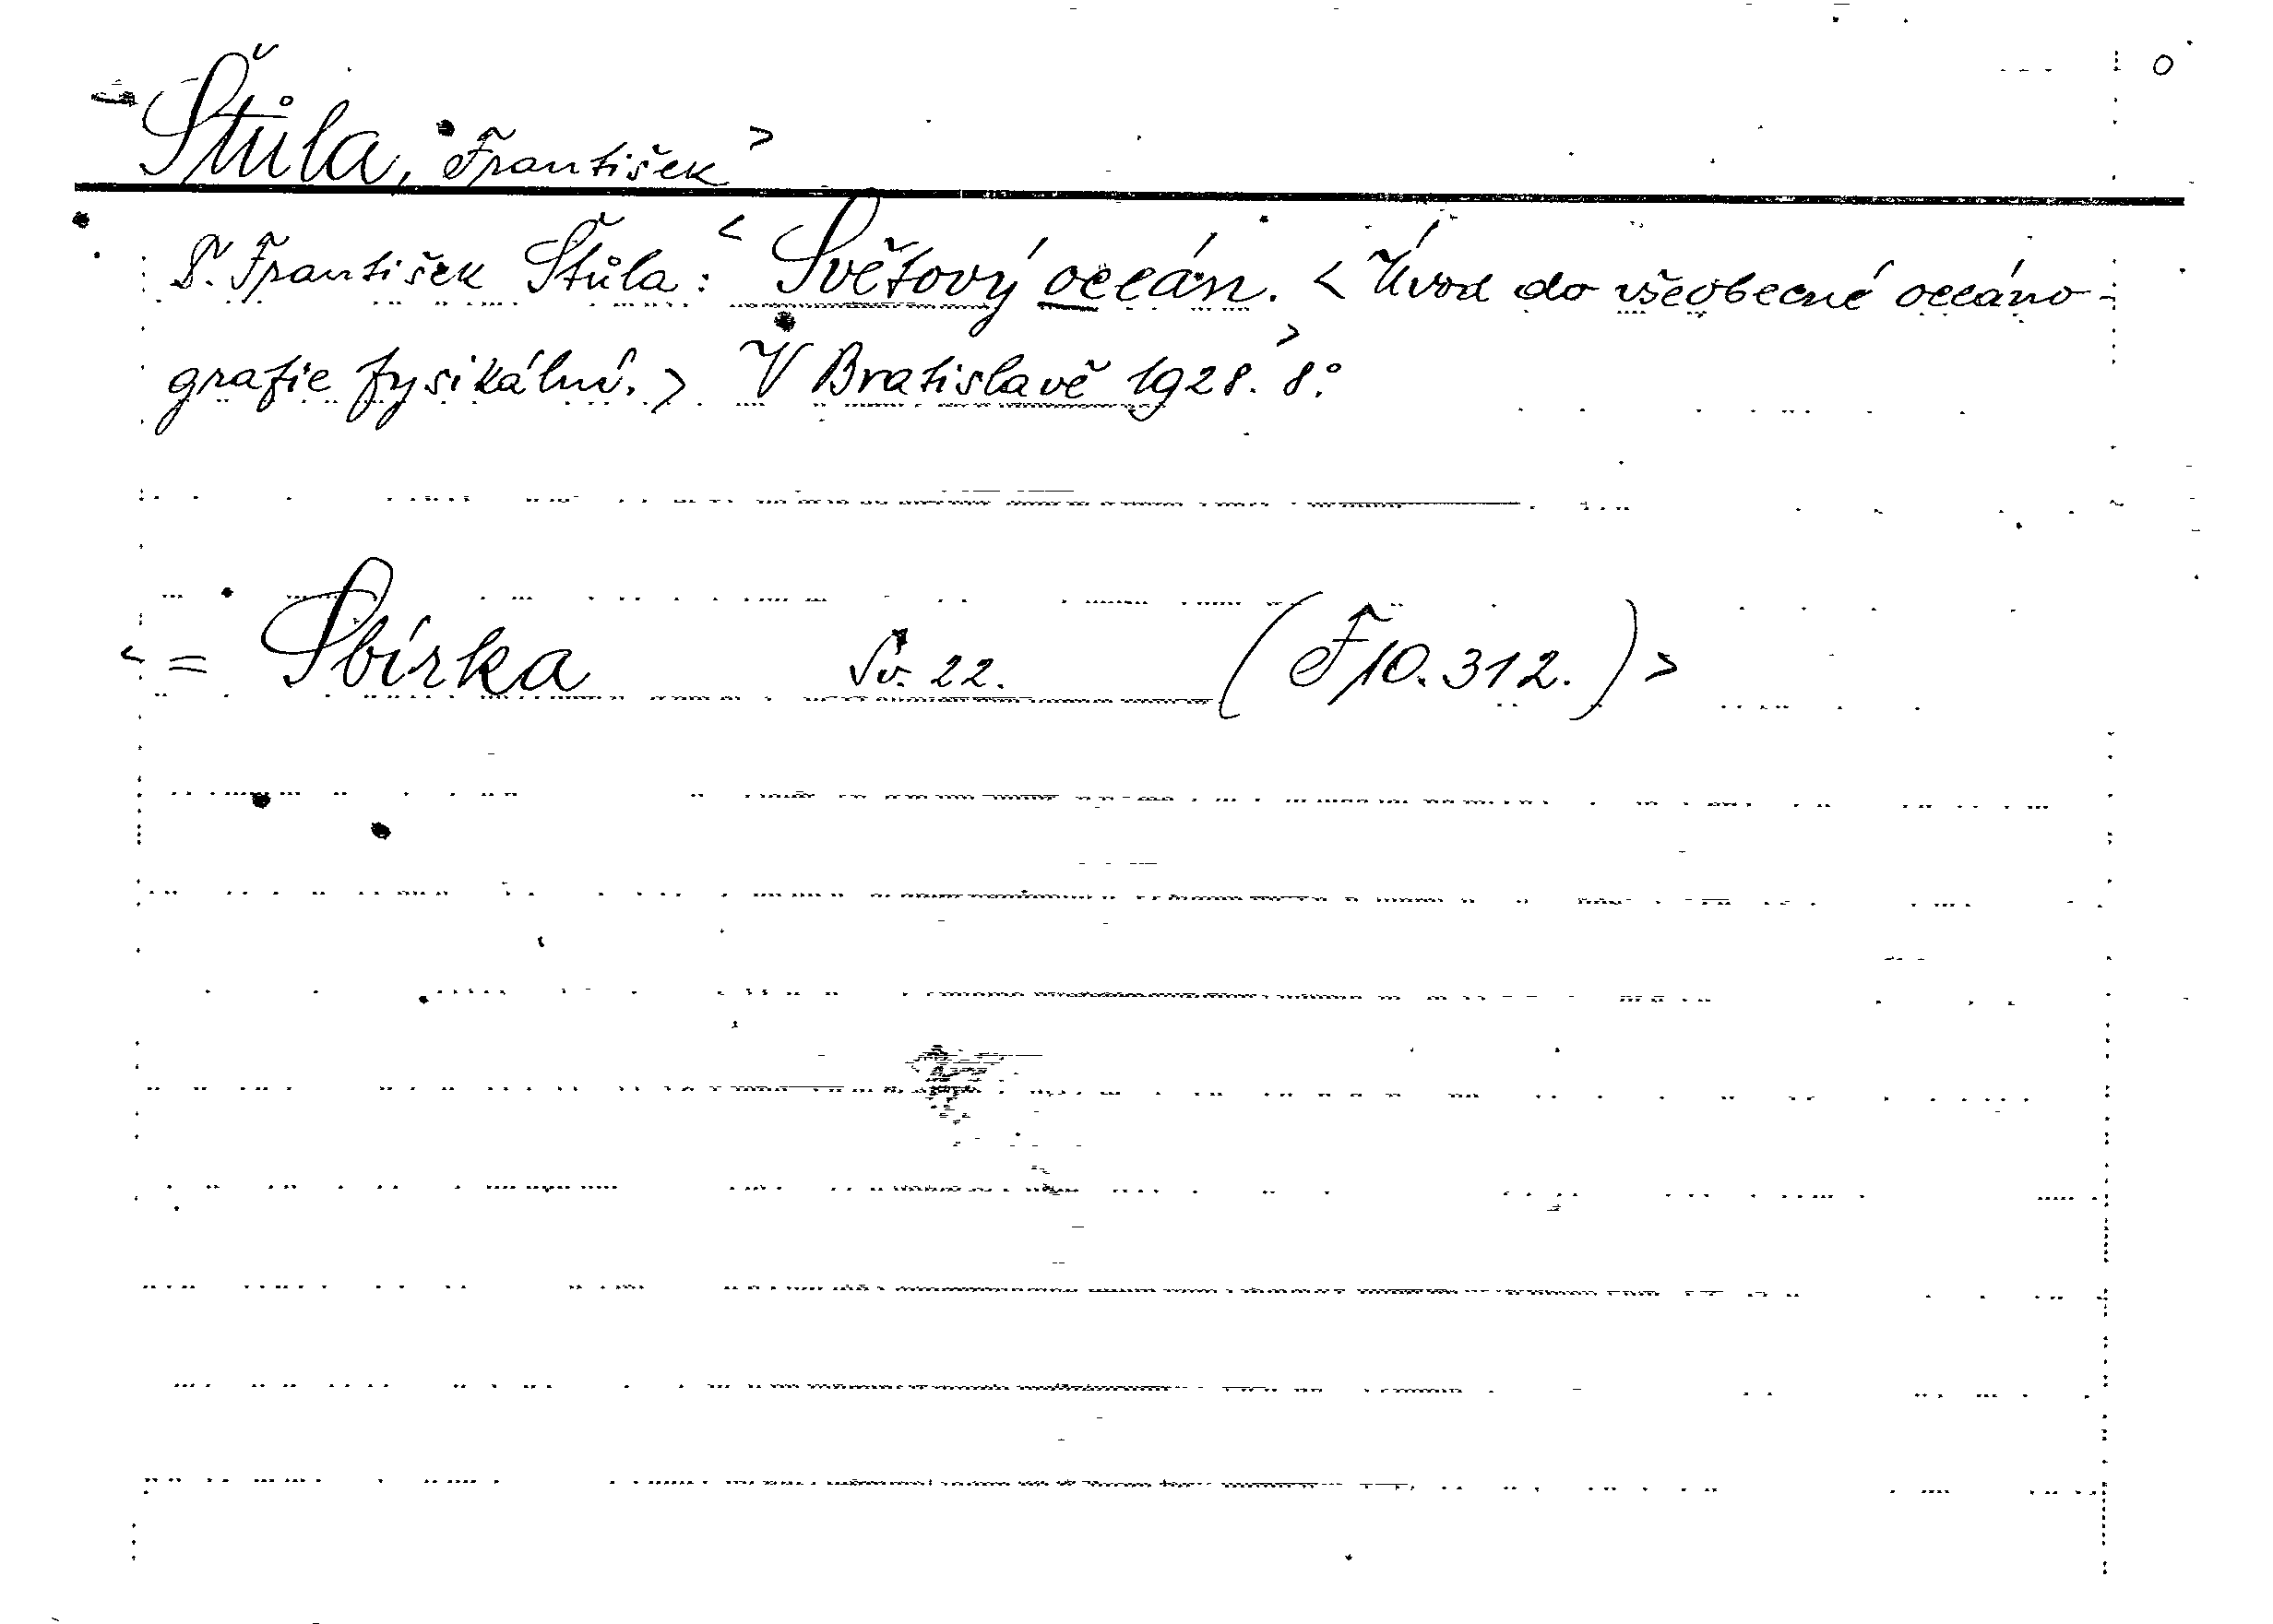 Štůla, František >
D. František Štůla: < Světový oceán. < Úvod do všeobecné oceáno-
grafie fysikální. > V Bratislavě 1928. > 8°.
< = Sbírka Sv. 22. (F 10.312.) >